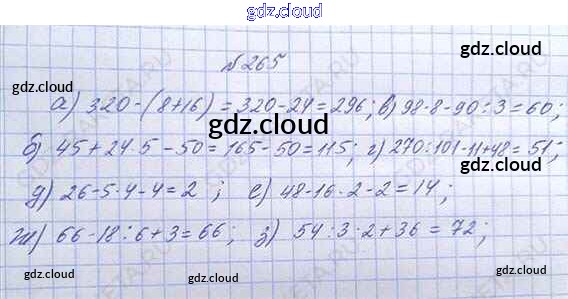 gdz.cloud
gdz.cloud
№265
gdz.cloud
gdz.cloud
а) 320-(8+16)=320-24=296; в) 98-8-90:3=60;
gdz.cloud
б) 45+24·5-50=165-50=115; г) 270:101-11+48=51;
д) 26-5·4-4=2; е) 48-16·2-2=14;
ж) 66-18:6+3=66; з) 54:3·2+36=72;
gdz.cloud
gdz.cloud
gdz.cloud